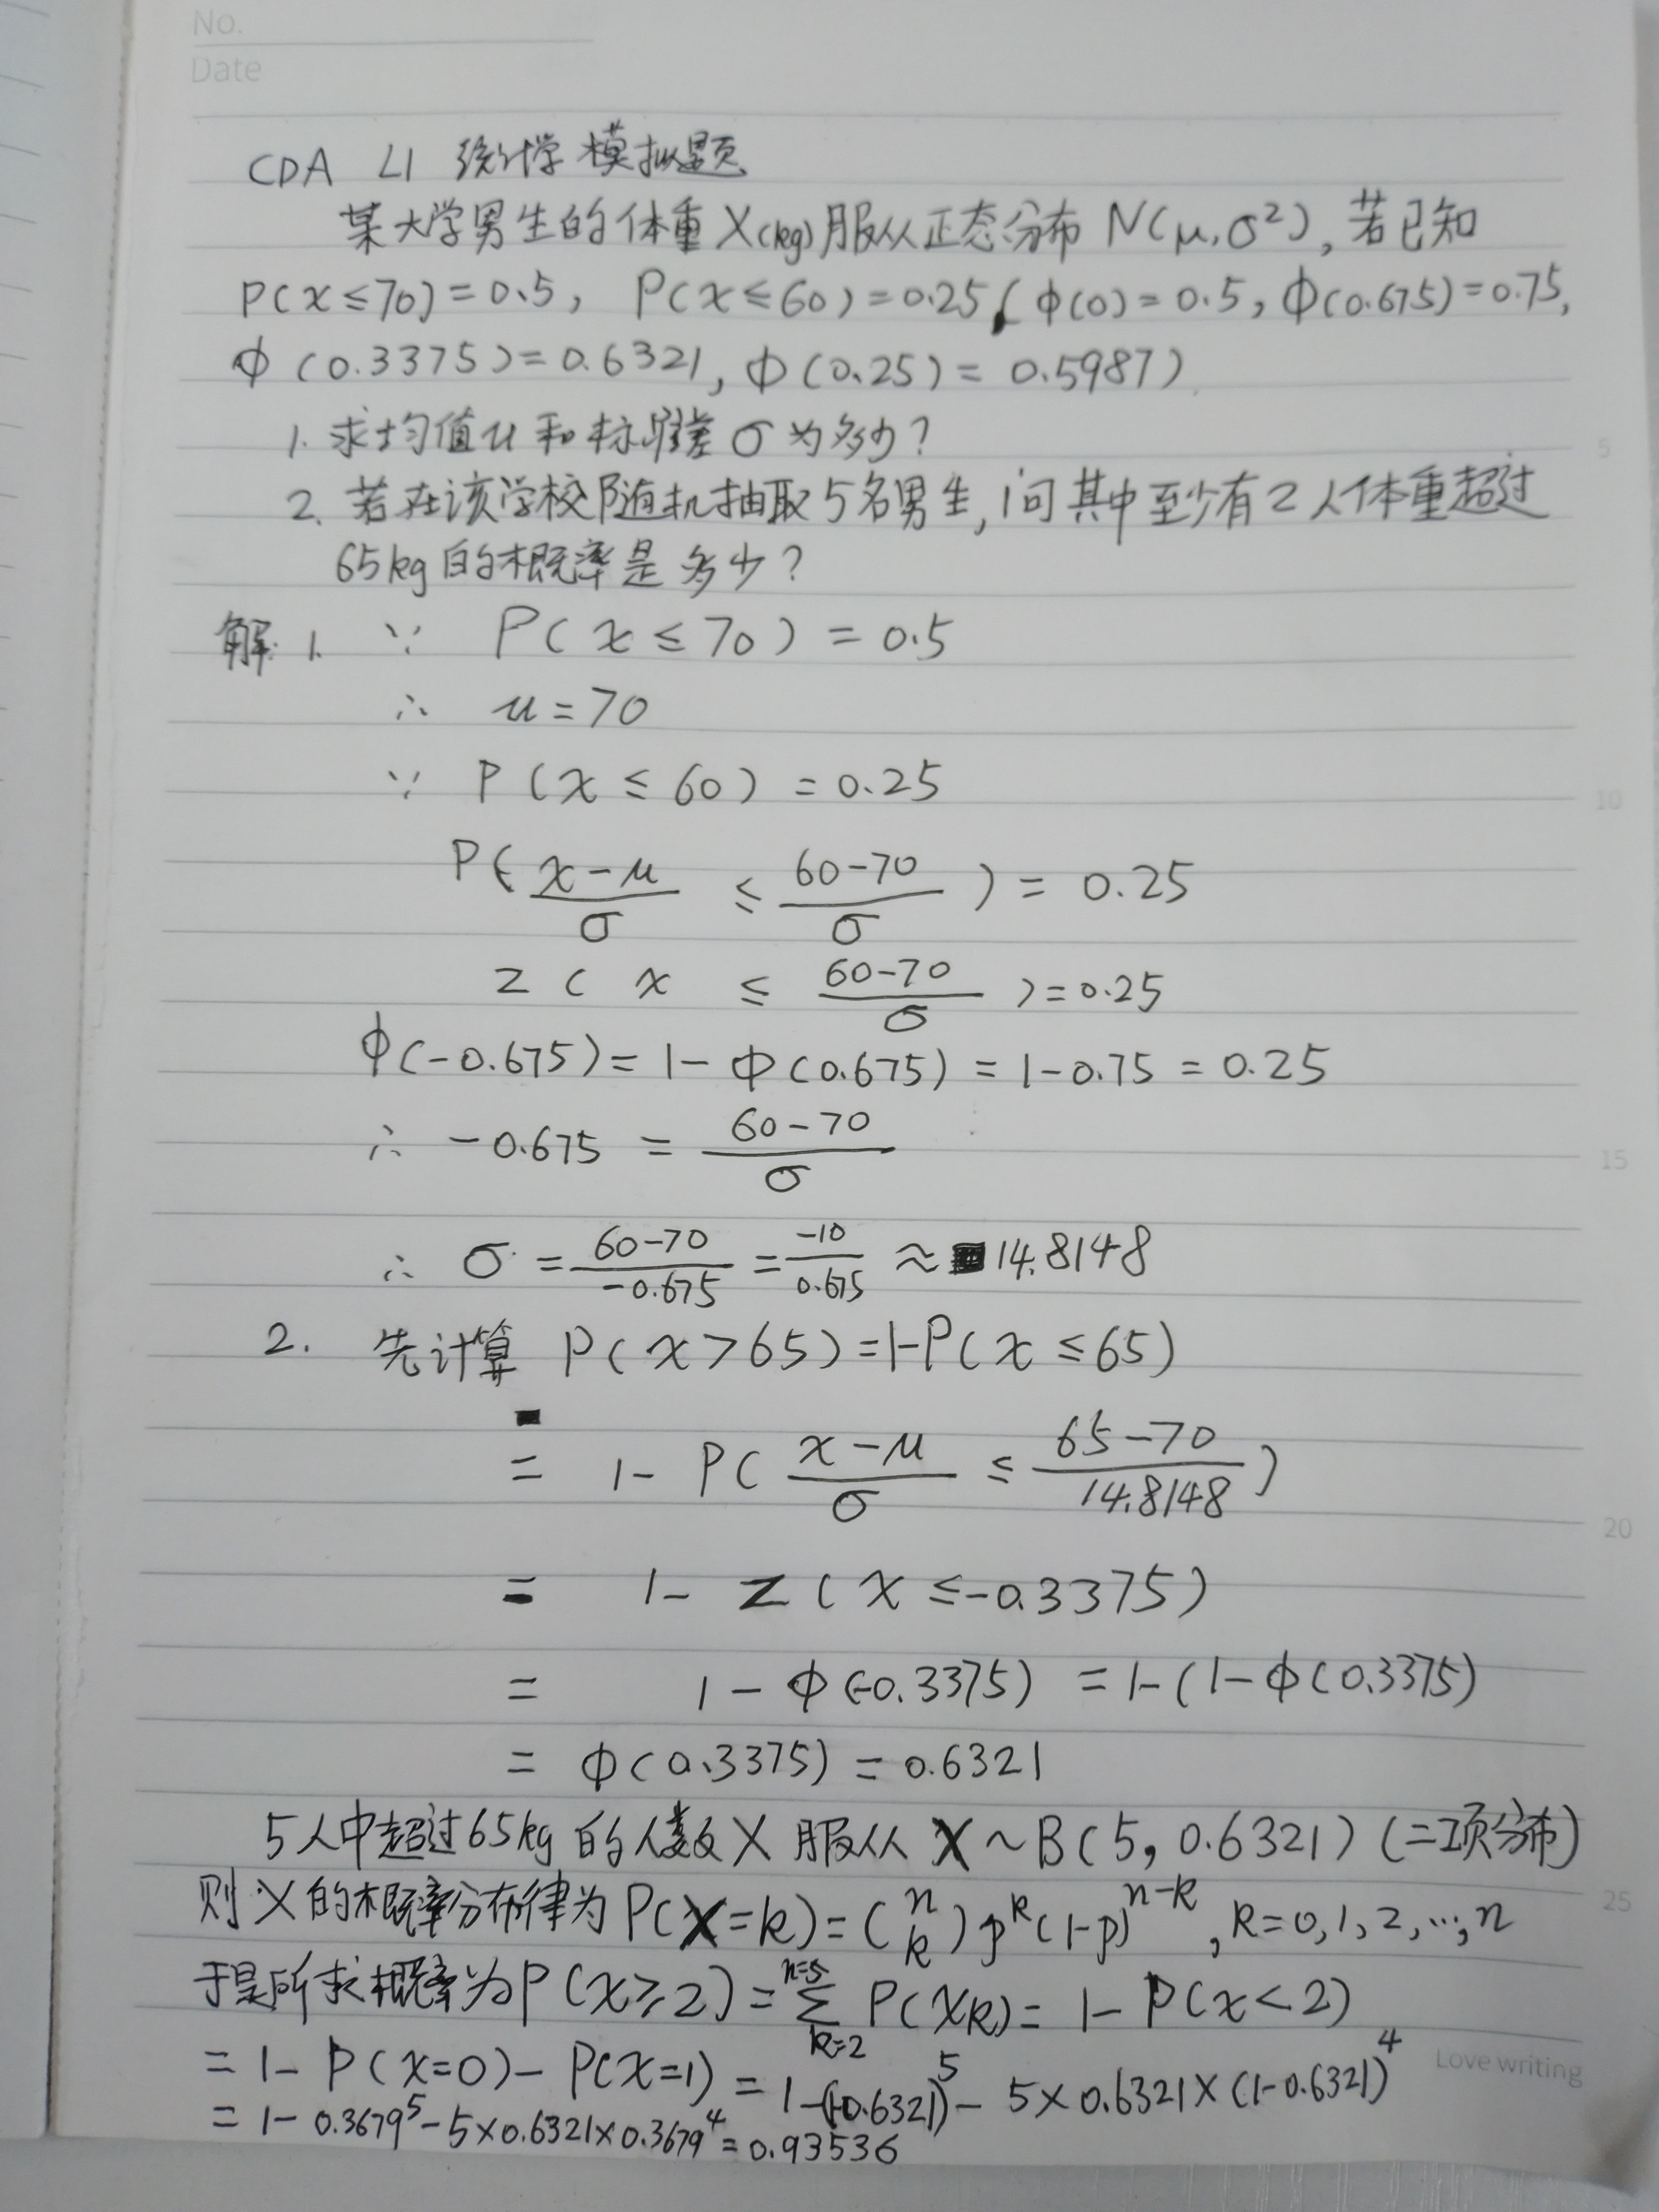 No.
Date
CDA L1 统计学模拟题
某大学男生的体重X(kg)服从正态分布 N(μ,σ²), 若已知
P(x≤70)=0.5, P(x≤60)=0.25 (φ(0)=0.5, φ(0.675)=0.75,
φ(0.3375)=0.6321, φ(0.25)=0.5987)
1. 求均值u和标准差σ为多少?
2. 若在该学校随机抽取5名男生,问其中至少有2人体重超过
65kg的概率是多少?
解: 1. ∵ P(x≤70)=0.5
∴ u=70
∵ P(x≤60)=0.25
P(\frac{x-u}{σ} ≤ \frac{60-70}{σ})=0.25
z(x ≤ \frac{60-70}{σ})=0.25
φ(-0.675)=1-φ(0.675)=1-0.75=0.25
∴ -0.675 = \frac{60-70}{σ}
∴ σ = \frac{60-70}{-0.675} = \frac{-10}{0.675} ≈ 14.8148
2. 先计算 P(x>65)=1-P(x≤65)
= 1-P(\frac{x-u}{σ} ≤ \frac{65-70}{14.8148})
= 1-z(x≤-0.3375)
= 1-φ(-0.3375) = 1-(1-φ(0.3375)
= φ(0.3375)=0.6321
5人中超过65kg的人数X服从 X~B(5, 0.6321) (二项分布)
则X的概率分布律为P(X=k)=\binom{n}{k}p^k(1-p)^{n-k}, k=0,1,2,…,n
于是所求概率为P(x≥2)=\sum_{k=2}^{n=5} P(Xk)=1-P(x<2)
=1-P(x=0)-P(x=1)=1-(1-0.6321)^5-5×0.6321×(1-0.6321)^4
=1-0.3679^5-5×0.6321×0.3679^4=0.93536
5
10
15
20
25
Love writing